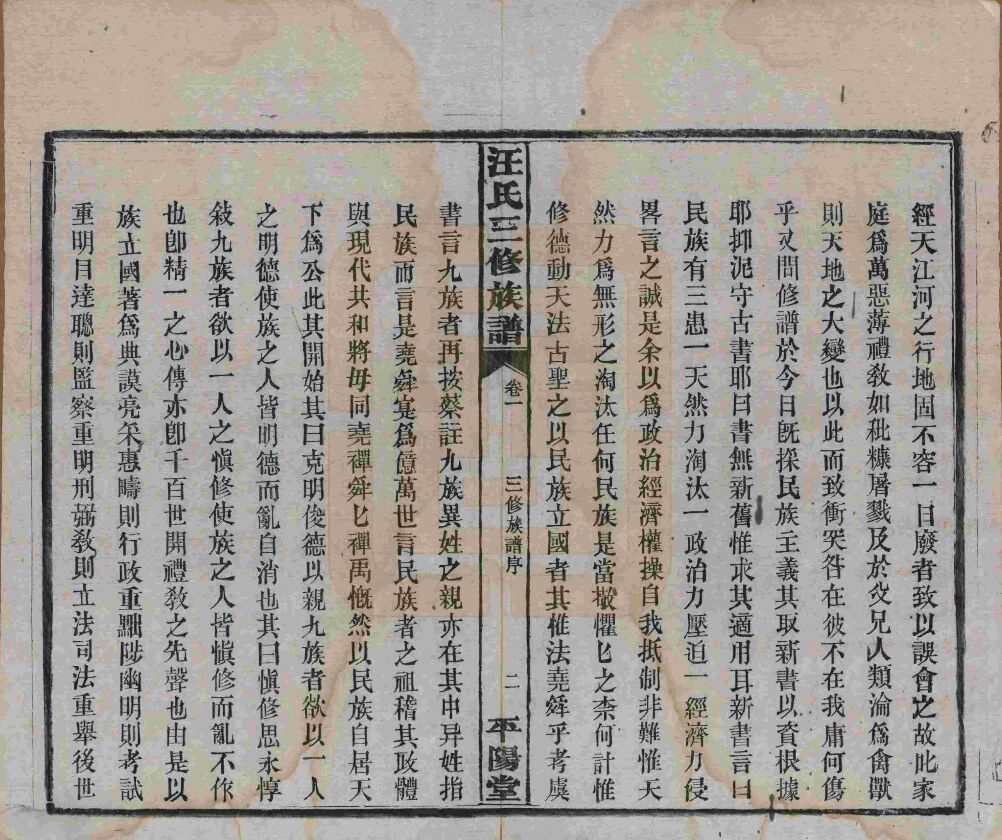 經天江河之行地固不容一日廢者致以誤會之故叱家
庭爲萬惡薄禮敎如秕糠屠戮及於父兄人類淪爲禽獸
則天地之大變也以此而致衝突咎在彼不在我庸何傷
乎又問修譜於今日旣採民族主義其取新書以資根據
耶抑泥守古書耶曰書無新舊惟求其適用耳新書言曰
民族有三患一天然力淘汰一政治力壓迫一經濟力侵
畧言之誠是余以爲政治經濟權操自我抵制非難惟天
然力爲無形之淘汰任何民族是當儆懼匕之柰何計惟
修德動天法古聖之以民族立國者其惟法堯舜乎考虞
汪氏三修族譜
卷一
三修族譜序
二
平陽堂
書言九族者再按蔡註九族異姓之親亦在其中异姓指
民族而言是堯舜寔爲億萬世言民族者之祖稽其政體
與現代共和將毋同堯禪舜匕禪禹慨然以民族自居天
下爲公此其開始其曰克明俊德以親九族者欲以一人
之明德使族之人皆明德而亂自消也其曰愼修思永惇
敍九族者欲以一人之愼修使族之人皆愼修而亂不作
也卽精一之心傳亦卽千百世開禮敎之先聲也由是以
族立國著爲典謨亮采惠疇則行政重黜陟幽明則考試
重明目達聰則監察重明刑弼敎則立法司法重舉後世